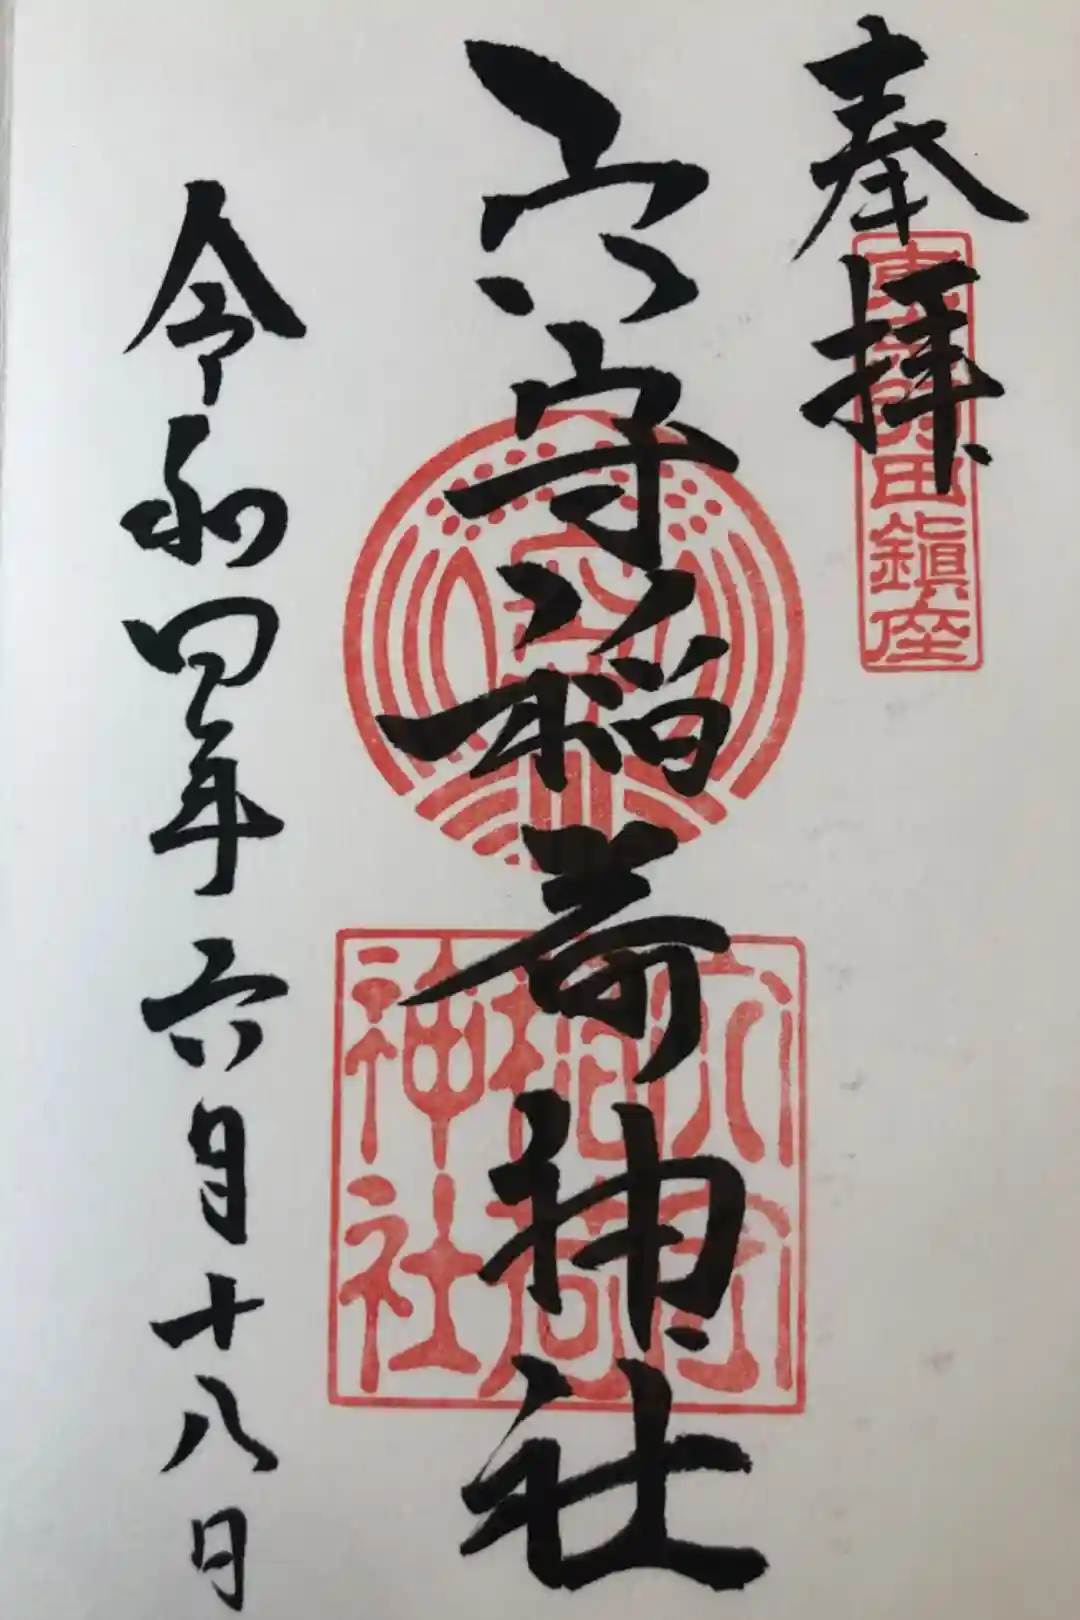 奉拝
東京羽田鎮座
穴守稲荷神社
穴守
稲荷
神社
令和四年六月十八日